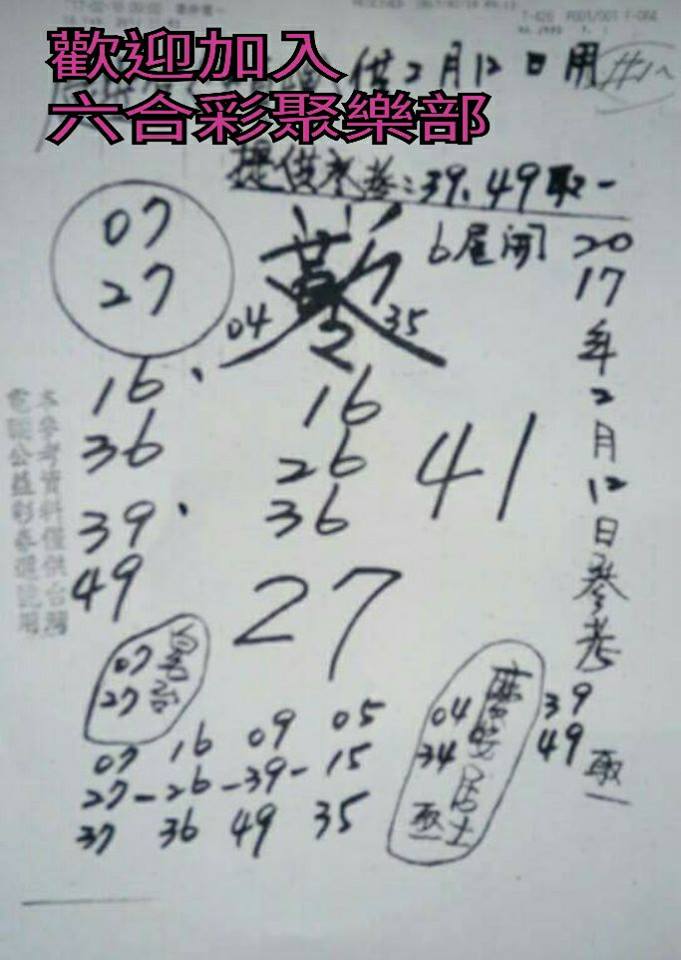 歡迎加入
六合彩聚樂部
供2月12日用
提供參考:39、49取一
07
27
6尾開
04
35
2017年2月12日參考
16、
36
39、
49
16
26
36
41
27
本參考資料僅供台灣
電腦公益彩券選號用
07
27
07 16 09 05
27-26-39-15
37 36 49 35
04
34
居士
取一
39
49
取一